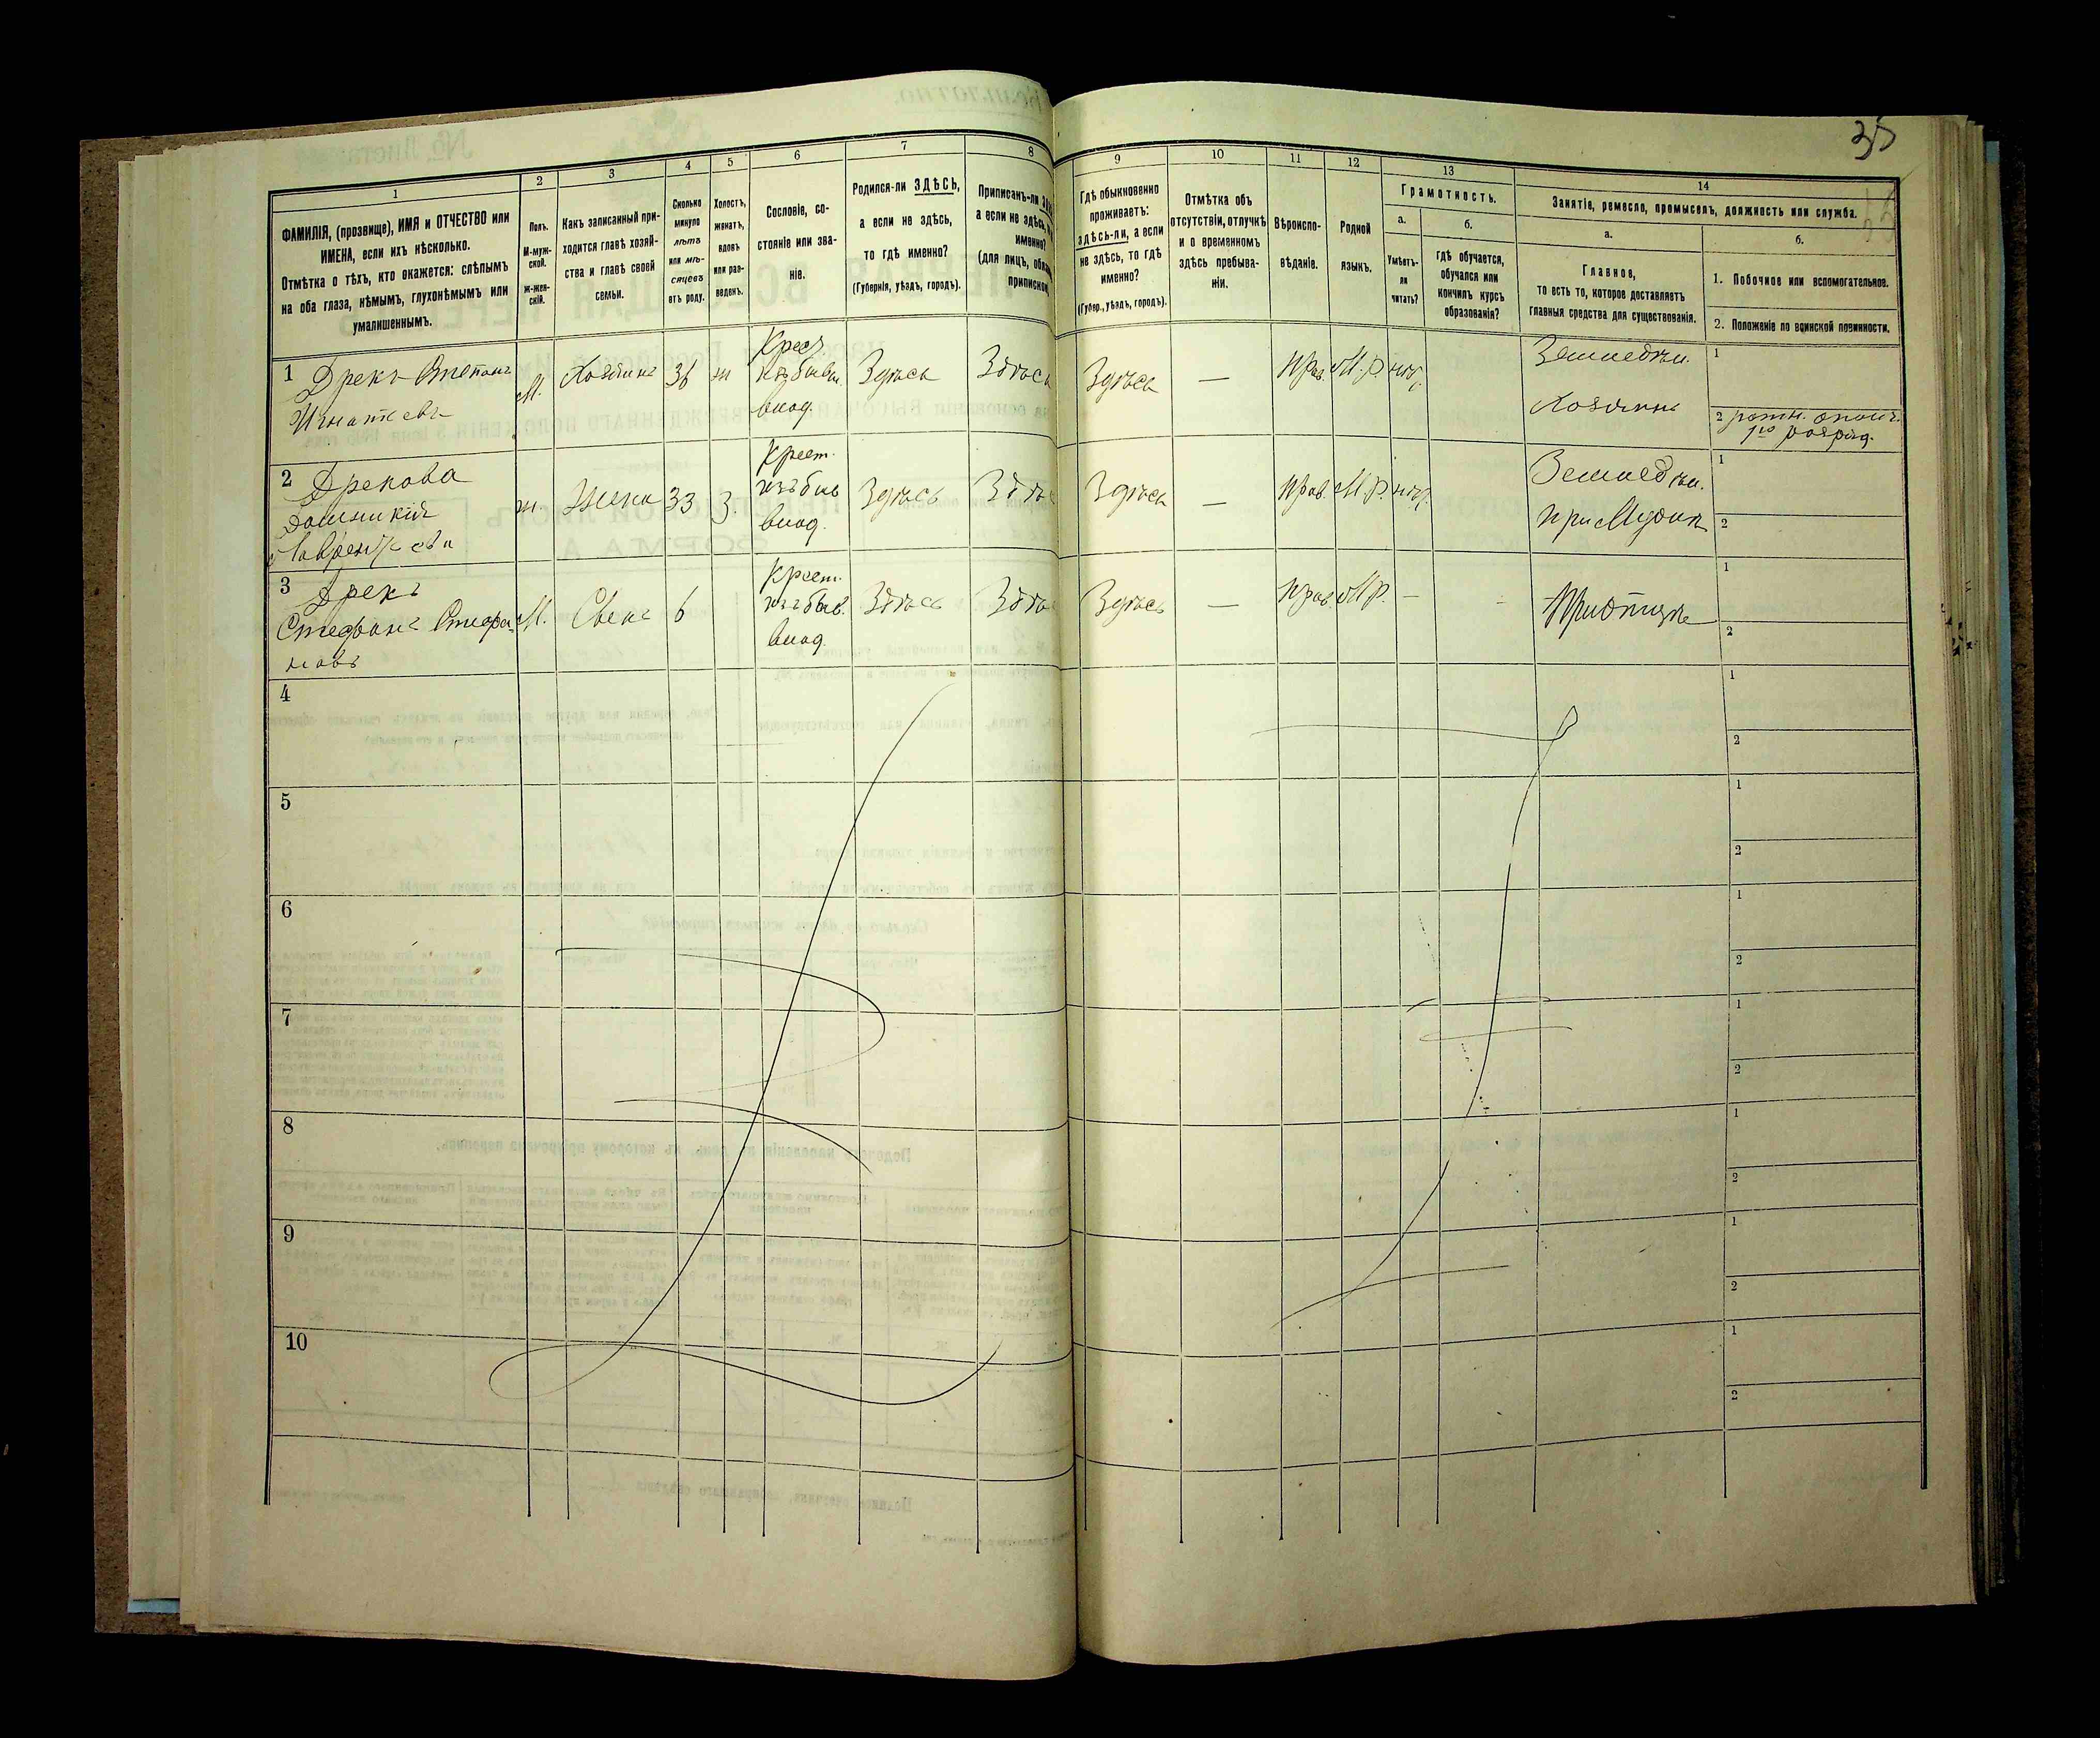 35
1
2
3
4
5
6
7
8
9
10
11
12
13
14
ФАМИЛІЯ, (прозвище), ИМЯ и ОТЧЕСТВО или
ИМЕНА, если ихъ нѣсколько.
Отмѣтка о тѣхъ, кто окажется: слѣпымъ
на оба глаза, нѣмымъ, глухонѣмымъ или
умалишеннымъ.
Полъ.
М-муж-
ской.
ж-жен-
скій.
Какъ записанный при-
ходится главѣ хозяй-
ства и главѣ своей
семьи.
Сколько
минуло
лѣтъ
или мѣ-
сяцевъ
отъ роду.
Холостъ,
женатъ,
вдовъ
или раз-
веденъ.
Сословіе, со-
стояніе или зва-
ніе.
Родился-ли ЗДѢСЬ,
а если не здѣсь,
то гдѣ именно?
(Губернія, уѣздъ, городъ).
Приписанъ-ли
а если не здѣсь,
именно?
(для лицъ,
Гдѣ обыкновенно
проживаетъ:
здѣсь-ли, а если
не здѣсь, то гдѣ
именно?
(Губер., уѣздъ, городъ).
Отмѣтка объ
отсутствіи, отлучкѣ
и о временномъ
здѣсь пребыва-
ніи.
Вѣроиспо-
вѣданіе.
Родной
языкъ.
Грамотность.
а.
Умѣетъ-
ли
читать?
б.
гдѣ обучается,
обучался или
кончилъ курсъ
образованія?
Занятіе, ремесло, промыселъ, должность или служба.
а.
Главное,
то есть то, которое доставляетъ
главныя средства для существованія.
б.
1. Побочное или вспомогательное.
2. Положеніе по воинской повинности.
1 Дрекъ Степанъ
Игнатьевъ
М.
Хозяинъ
36
ж
Крест.
изъ бывш.
влад.
Здѣсь
Здѣсь
Здѣсь
—
Прав.
М.р.
нѣт.
Земледѣл.
Хозяинъ
1
2 ратн. ополч.
1го разряд.
2 Дрекова
Лаврентьева
ж.
Жена
33
З.
Крест.
изъ быв
влад.
Здѣсь
Здѣсь
Здѣсь
—
Прав.
М.р.
нѣт.
Земледѣл.
при Мужѣ
1
2
3 Дрекъ
Стефанъ Стефа-
новъ
М.
Сынъ
6
Крест.
изъ быв.
влад.
Здѣсь
Здѣсь
Здѣсь
—
Прав.
М.р.
—
При отцѣ
1
2
4
1
2
5
1
2
6
1
2
7
1
2
8
1
2
9
1
2
10
1
2